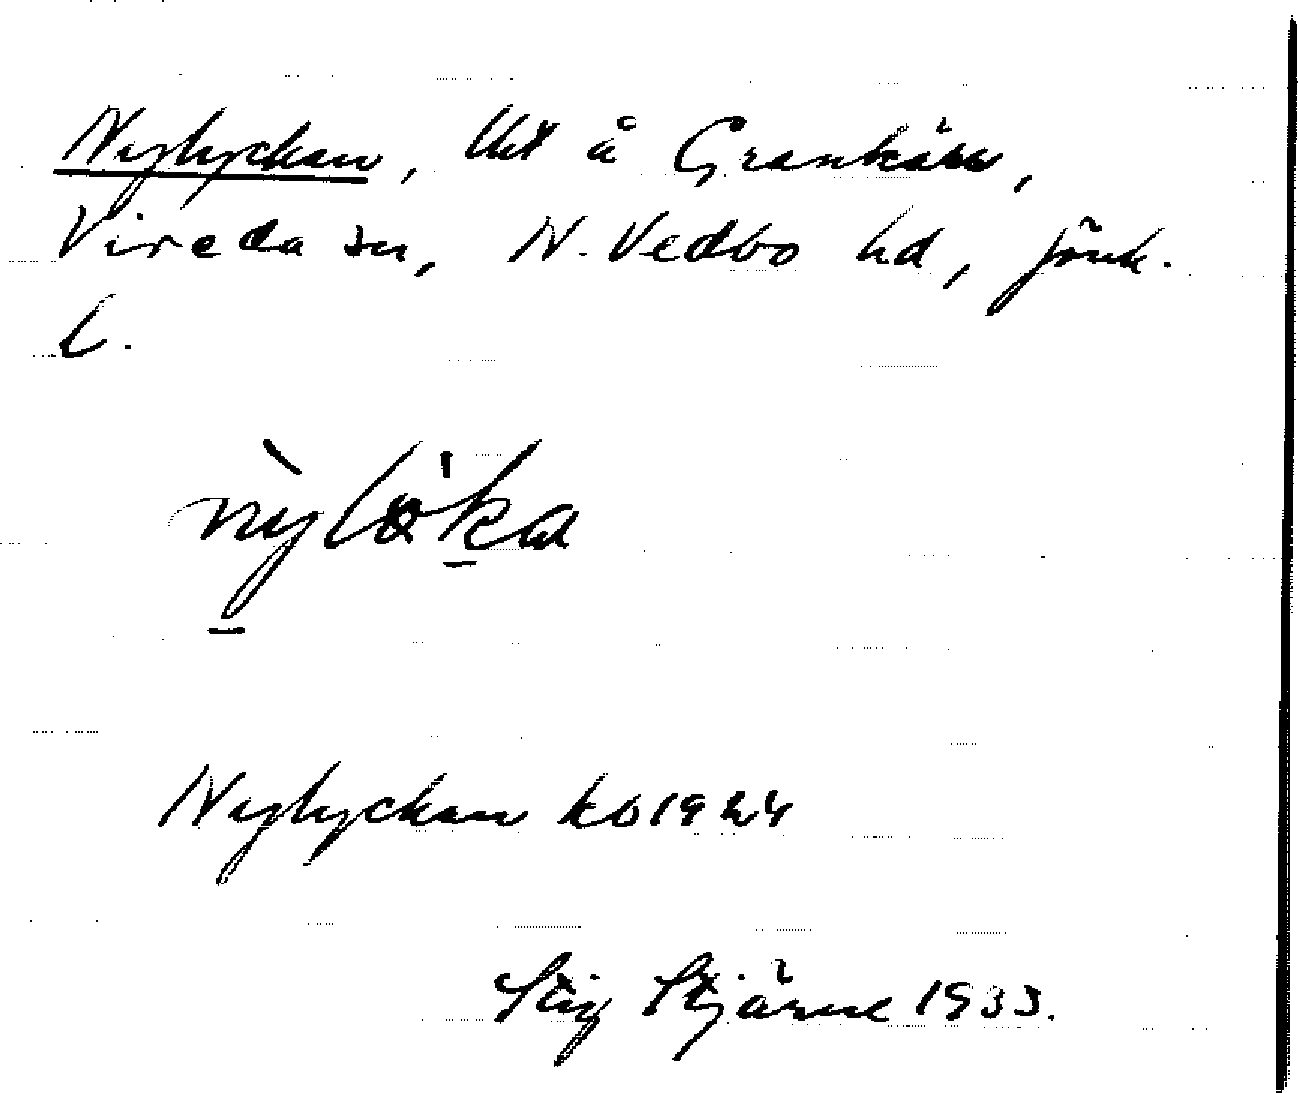 Nylyckan, lht å Grankärr,
Vireda sn, N. Vedbo hd, Jönk.
l.
ǹylö'ka
Nylyckan kb 1924
Stig Stjärne 1933.